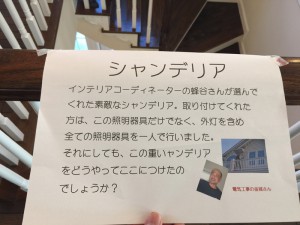 シャンデリア
インテリアコーディネーターの蜂谷さんが選んで
くれた素敵なシャンデリア。取り付けてくれた
方は、この照明器具だけでなく、外灯を含め
全ての照明器具を一人で行いました。
それにしても、この重いャンデリア
をどうやってここにつけたの
でしょうか？
電気工事の